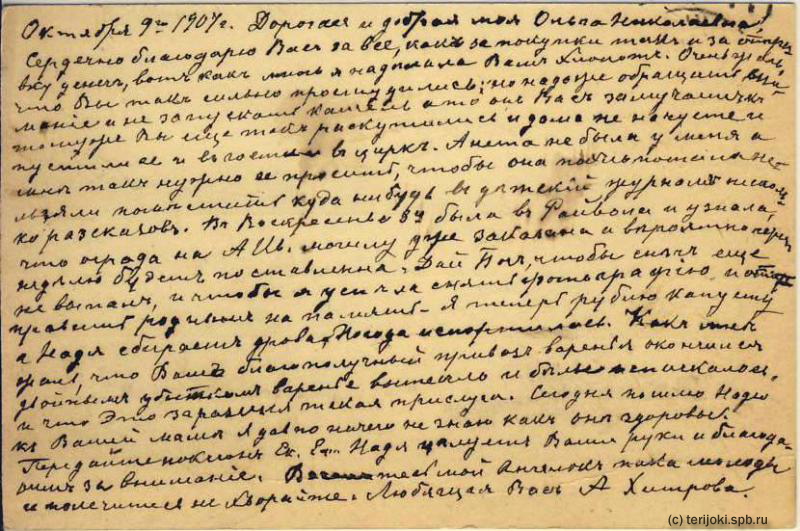 Октября 9го 1907г. Дорогая и добрая моя Ольга Николаевна,
Сердечно благодарю Васъ за все, какъ за покупки такъ и за отпра-
вку денегъ, вотъ какъ много я надѣлала Вамъ хлопотъ. Очень жаль,
что Вы такъ сильно простудились; но надо же обращать вни-
маніе и не запускать кашель а то онъ Васъ замучаетъ
тоже Вы еще и дома не
пустили ее и въ гости и въ циркъ. Анета не была у меня а
мнѣ такъ нужно ее просить, чтобы она не-
льзя ли помѣстить куда нибудь въ дѣтскій журналъ нѣсколь-
ко разсказовъ. Въ Воскресенье была въ Райвола и узнала,
что ограда на могилу уже заказана и вѣроятно черезъ
недѣлю будетъ поставлена. Дай Богъ, чтобы снѣгъ еще
не выпалъ, и чтобы я успѣла снять фотографію и отпр
равить роднымъ на память. Я теперь рублю капусту
а Надя сбираетъ дрова. Погода испортилась. Какъ мнѣ
жаль, что Вашъ благополучный привозъ варенья окончился
двойнымъ убыткомъ варенье вытекло и бѣлье
и что Это за прислуга. Сегодня пошлю Надю
къ Вашей мамѣ я давно ничего не знаю какъ онѣ здоровы.
Передайте поклонъ Ек. Надя цѣлуетъ Ваши руки и благода-
ритъ за вниманіе. мой Ангелокъ пока молоды
и полечитесь не хворайте. Любящая Васъ А Хитрова.
(c) terijoki.spb.ru